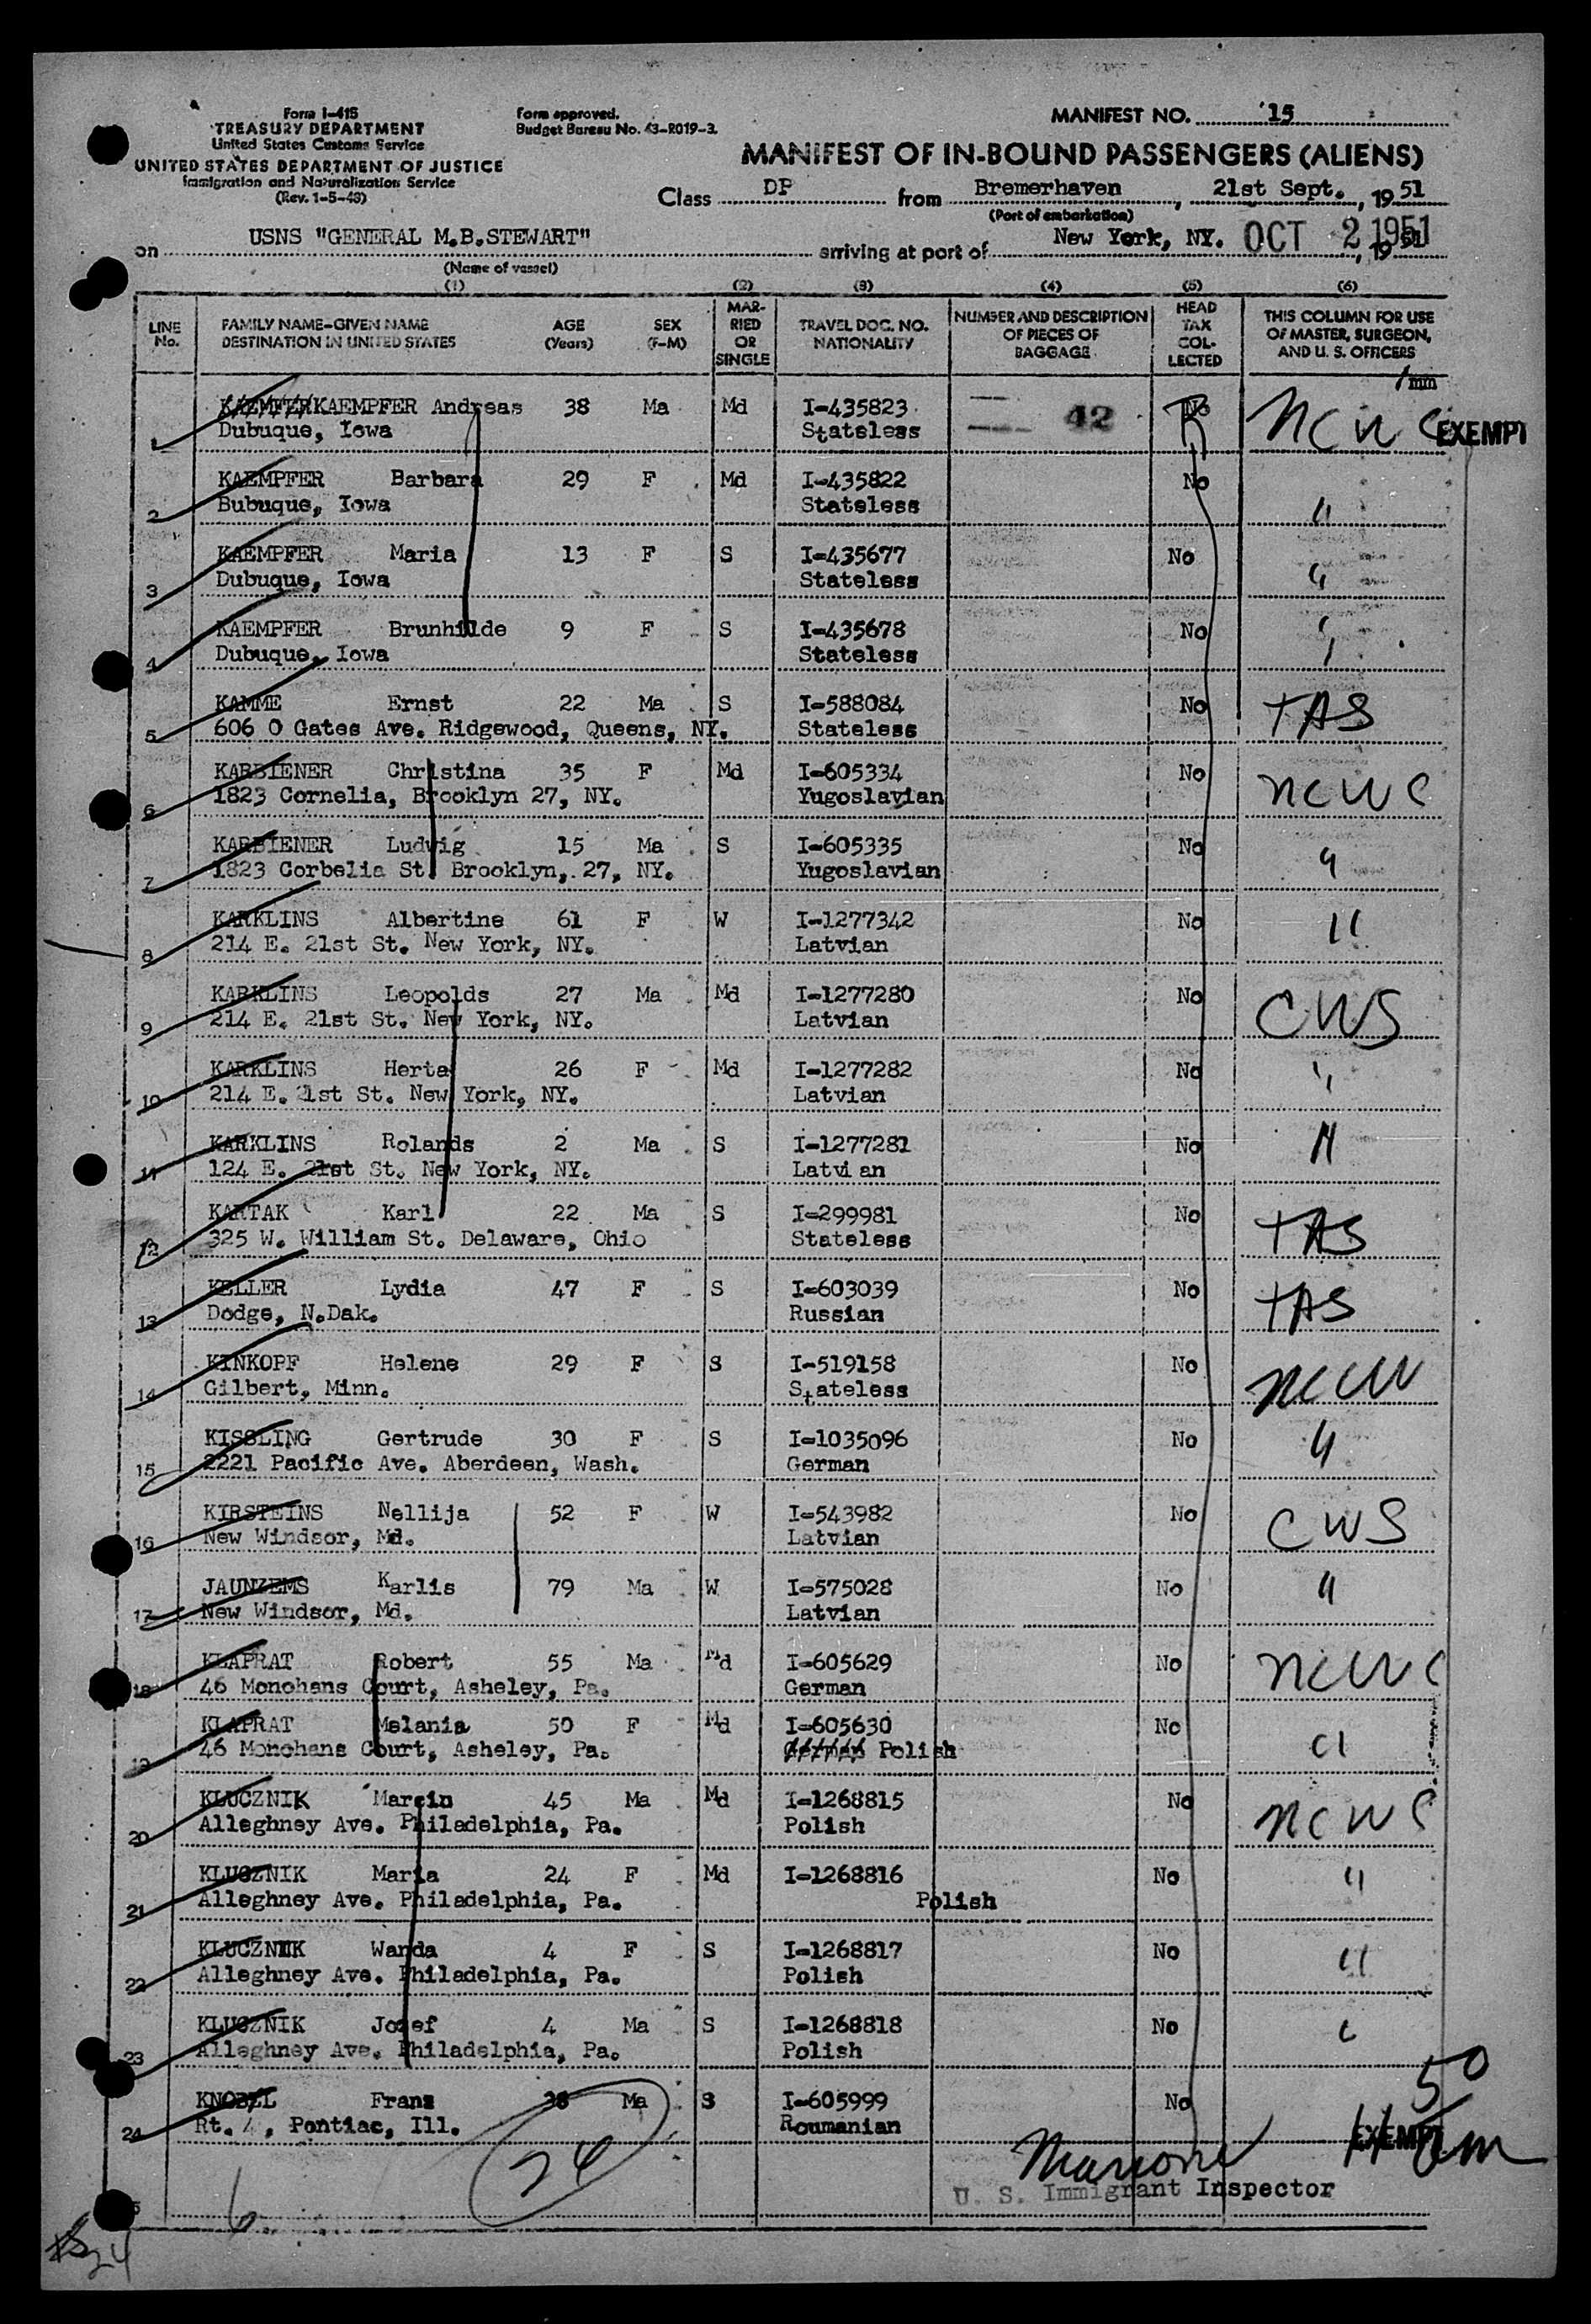 Form I-415
TREASURY DEPARTMENT
United States Customs Service
UNITED STATES DEPARTMENT OF JUSTICE
Immigration and Naturalization Service
(Rev. 1-5-48)
Form approved.
Budget Bureau No. 43-R019-3.
MANIFEST NO. 15
MANIFEST OF IN-BOUND PASSENGERS (ALIENS)
Class DP from Bremerhaven, 21st Sept., 19 51
(Port of embarkation)
on USNS "GENERAL M.B.STEWART" arriving at port of New York, NY. OCT 2 1951, 19 51
(Name of vessel)
(1) (2) (3) (4) (5) (6)
LINE No. FAMILY NAME-GIVEN NAME DESTINATION IN UNITED STATES AGE (Years) SEX (F-M) MARRIED OR SINGLE TRAVEL DOC. NO. NATIONALITY NUMBER AND DESCRIPTION OF PIECES OF BAGGAGE HEAD TAX COLLECTED THIS COLUMN FOR USE OF MASTER, SURGEON, AND U. S. OFFICERS
1 KAEMPFER Andreas 38 Ma Md I-435823 42 No NCWC EXEMPT
Dubuque, Iowa Stateless
2 KAEMPFER Barbara 29 F Md I-435822 No "
Bubuque, Iowa Stateless
3 KAEMPFER Maria 13 F S I-435677 No "
Dubuque, Iowa Stateless
4 KAEMPFER Brunhilde 9 F S I-435678 No "
Dubuque, Iowa Stateless
5 KAMME Ernst 22 Ma S I-588084 No TAS
606 O Gates Ave. Ridgewood, Queens, NY. Stateless
6 KARBIENER Christina 35 F Md I-605334 No NCWC
1823 Cornelia, Brooklyn 27, NY. Yugoslavian
7 KARBIENER Ludwig 15 Ma S I-605335 No "
1823 Corbelia St. Brooklyn, 27, NY. Yugoslavian
8 KARKLINS Albertine 61 F W I-1277342 No "
214 E. 21st St. New York, NY. Latvian
9 KARKLINS Leopolds 27 Ma Md I-1277280 No CWS
214 E. 21st St. New York, NY. Latvian
10 KARKLINS Herta 26 F Md I-1277282 No "
214 E. 21st St. New York, NY. Latvian
11 KARKLINS Rolands 2 Ma S I-1277281 No "
124 E. 21st St. New York, NY. Latvian
12 KARTAK Karl 22 Ma S I-299981 No TAS
325 W. William St. Delaware, Ohio Stateless
13 KELLER Lydia 47 F S I-603039 No TAS
Dodge, N.Dak. Russian
14 KINKOPF Helene 29 F S I-519158 No NCW
Gilbert, Minn. Stateless
15 KISSLING Gertrude 30 F S I-1035096 No "
2221 Pacific Ave. Aberdeen, Wash. German
16 KIRSTEINS Nellija 52 F W I-543982 No CWS
New Windsor, Md. Latvian
17 JAUNZEMS Karlis 79 Ma W I-575028 No "
New Windsor, Md. Latvian
18 KLAPRAT Robert 55 Ma Md I-605629 No NCWC
46 Monohans Court, Asheley, Pa. German
19 KLAPRAT Melania 50 F Md I-605630 No "
46 Monohans Court, Asheley, Pa. German Polish
20 KLUCZNIK Marcin 45 Ma Md I-1268815 No NCWC
Alleghney Ave. Philadelphia, Pa. Polish
21 KLUCZNIK Maria 24 F Md I-1268816 No "
Alleghney Ave. Philadelphia, Pa. Polish
22 KLUCZNIK Wanda 4 F S I-1268817 No "
Alleghney Ave. Philadelphia, Pa. Polish
23 KLUCZNIK Josef 4 Ma S I-1268818 No
Alleghney Ave. Philadelphia, Pa. Polish
24 KNOBEL Franz Ma S I-605999 No 50
Rt. 4, Pontiac, Ill. Roumanian EXEMPT
24
U. S. Immigrant Inspector
6
24